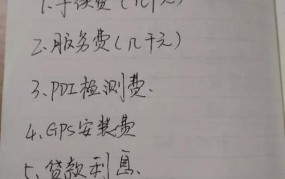 1.手续费(几千元)
2.服务费(几千元)
3.PDI检测费.
4.GPS安装费
5.贷款利息.